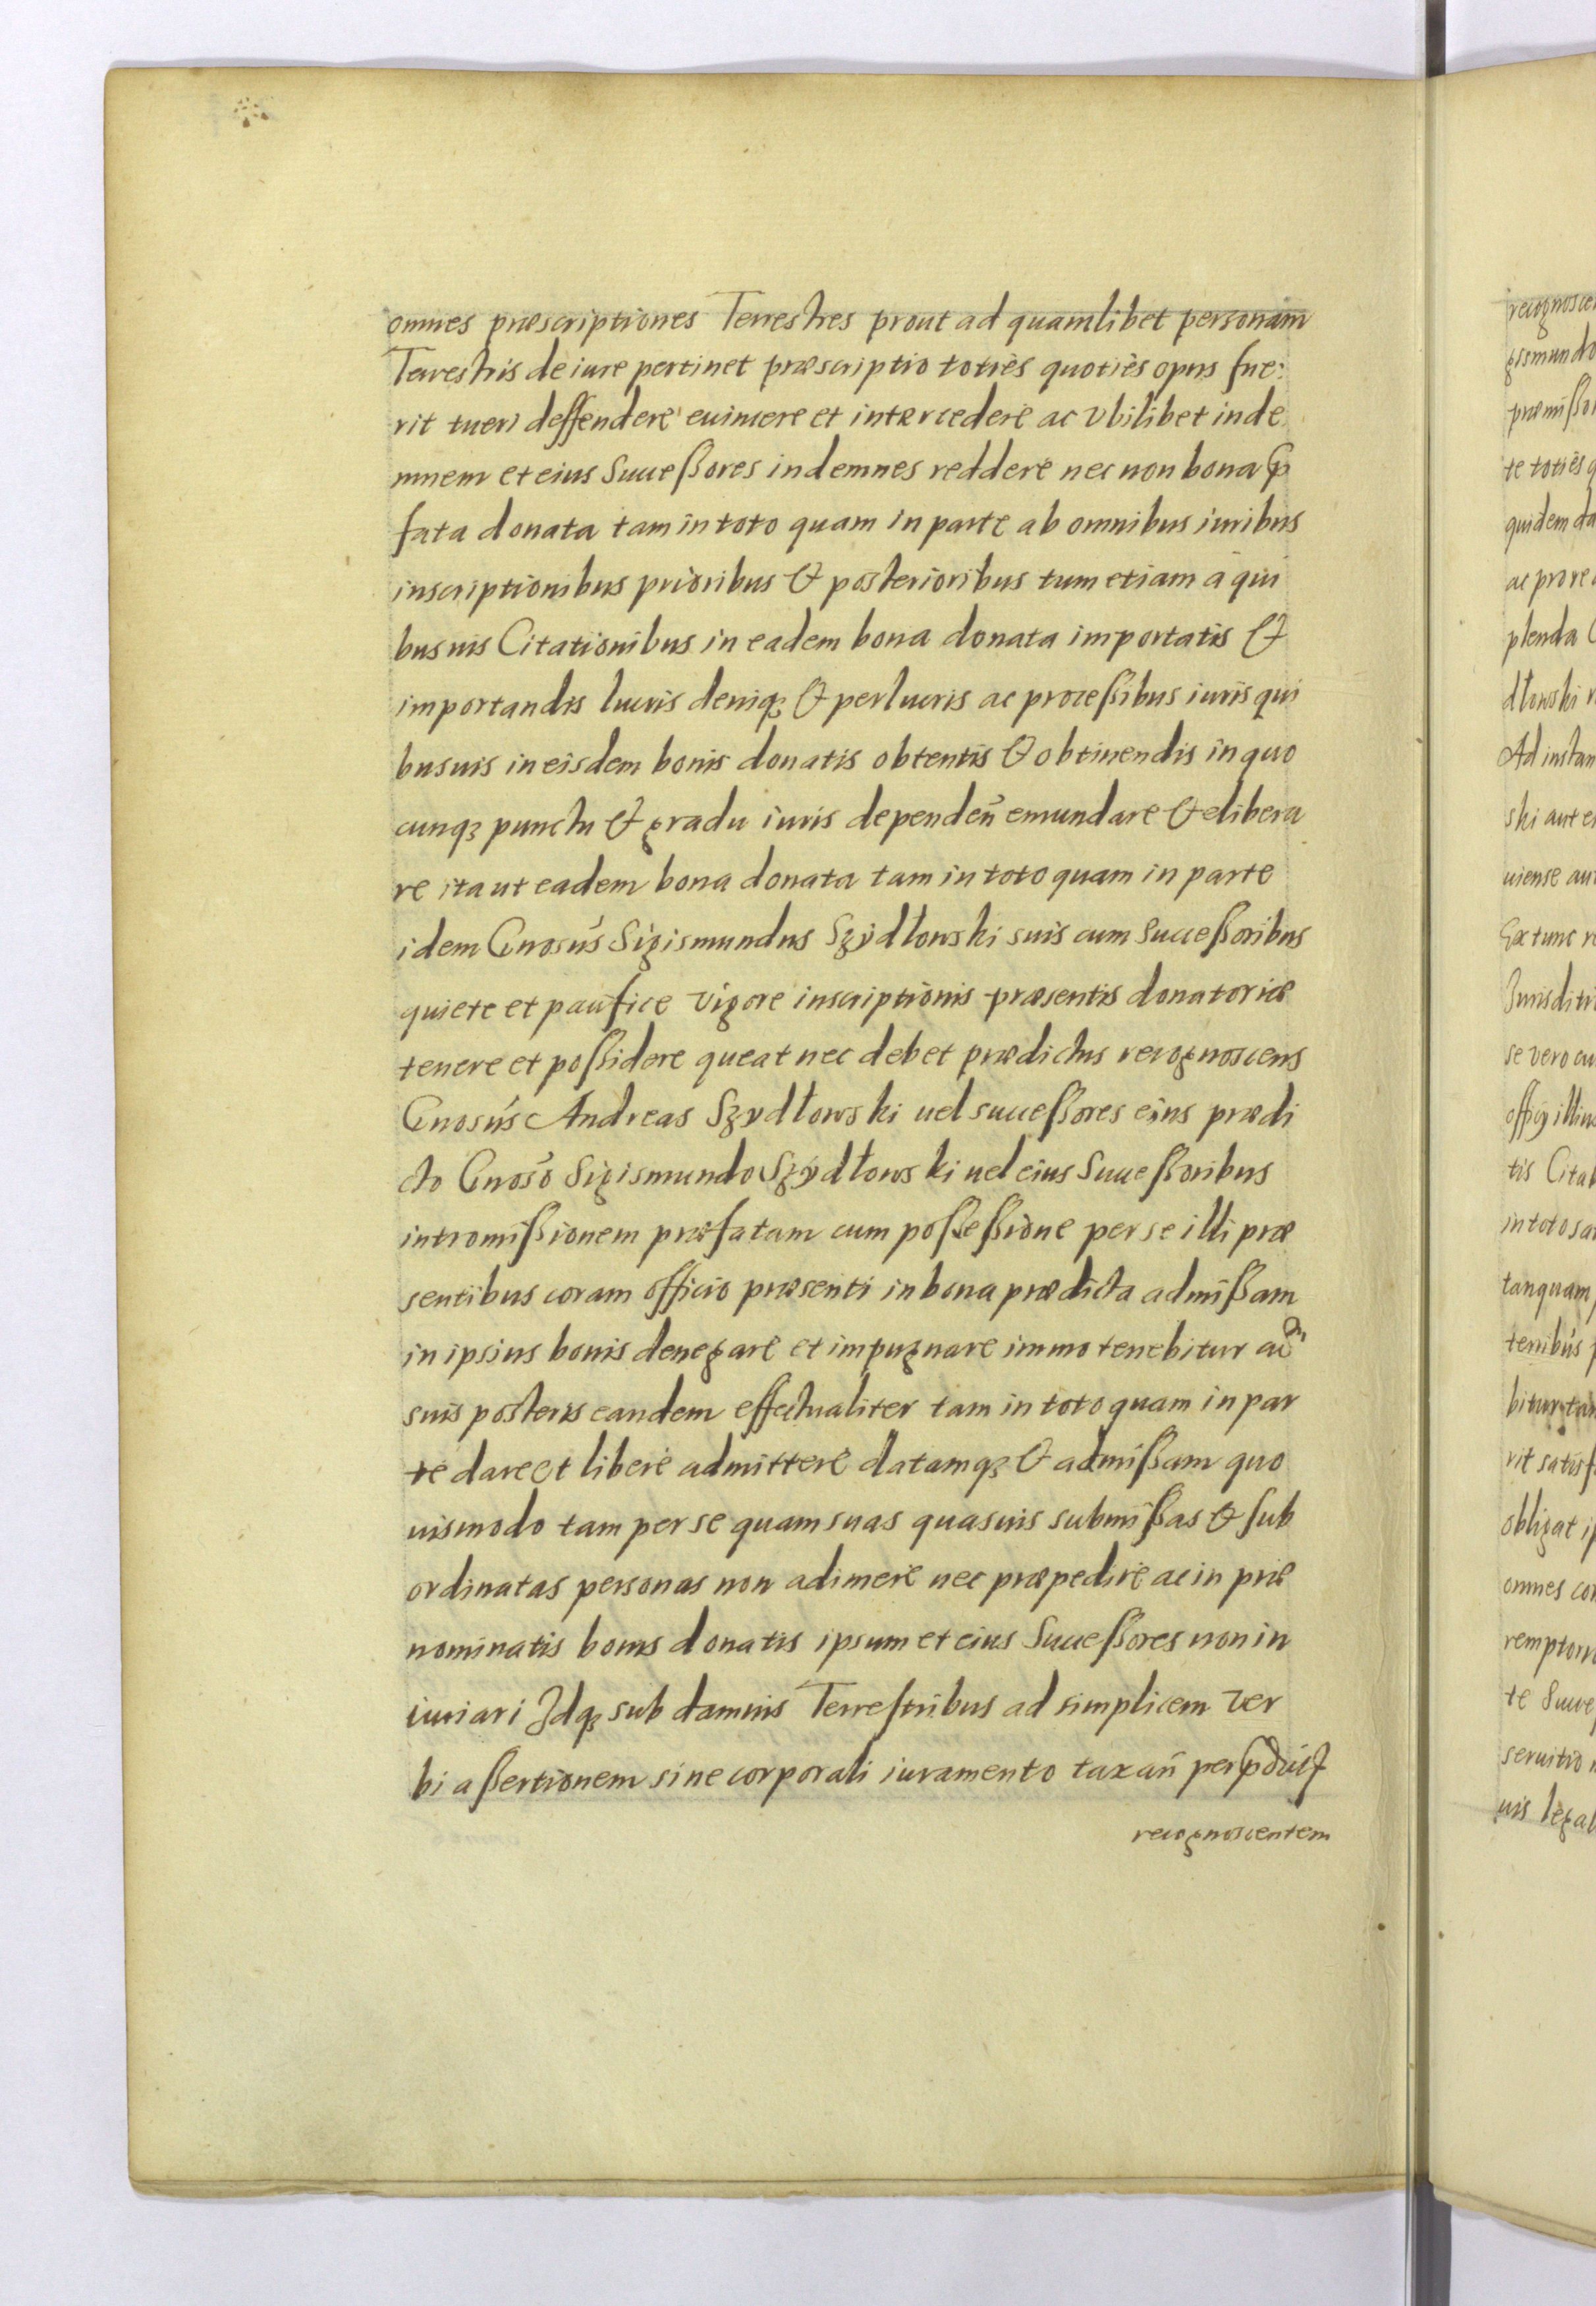 omnes præscriptiones Terrestres prout ad quamlibet personam
Terrestris de iure pertinet præscriptio totiès quotiès opus fue:
rit tueri deffendere euincere et intercedere ac Vbilibet inde
mnem et eius Succeßores indemnes reddere nec non bona p̱
fata donata tam in toto quam in parte ab omnibus iuribus
inscriptionibus prioribus & posterioribus tum etiam à qui
busuis Citationibus in eadem bona donata importatis &
importandis lucris deniqꝫ & perlucris ac proceßibus iuris qui
busuis in eisdem bonis donatis obtentis & obtinendis in quo
cunqꝫ punctu & gradu iuris dependeñ emundare & elibera
re ita ut eadem bona donata tam in toto quam in parte
idem Gnosus Sigismundus Szÿdłowski suis cum Succeßoribus
quiete et pacifice Vigore inscriptionis præsentis donatoriæ
tenere et poßidere queat nec debet prædictus recognoscens
Gnosus Andreas Szydłowski uel succeßores eius prædi
cto Gnoso Sigismundo Szÿdłowski uel eius Succeßoribus
intromißionem præfatam cum poßeßione per se illi præ
sentibus coram officio præsenti in bona prædicta admißam
in ipsius bonis denegare et impugnare immo tenebitur
suis posteris eandem effectualiter tam in toto quam in par
te dare et liberè admittere datamqꝫ & admißam quo
uismodo tam per se quam suas quasuis submißas & sub
ordinatas personas non adimere nec præpedire ac in præ
nominatis bonis donatis ipsum et eius Succeßores non in
iuriari Idqꝫ sub damnis Terrestribus ad simplicem Ver
bi aßertionem sine corporali iuramento taxañ per
recognoscentem